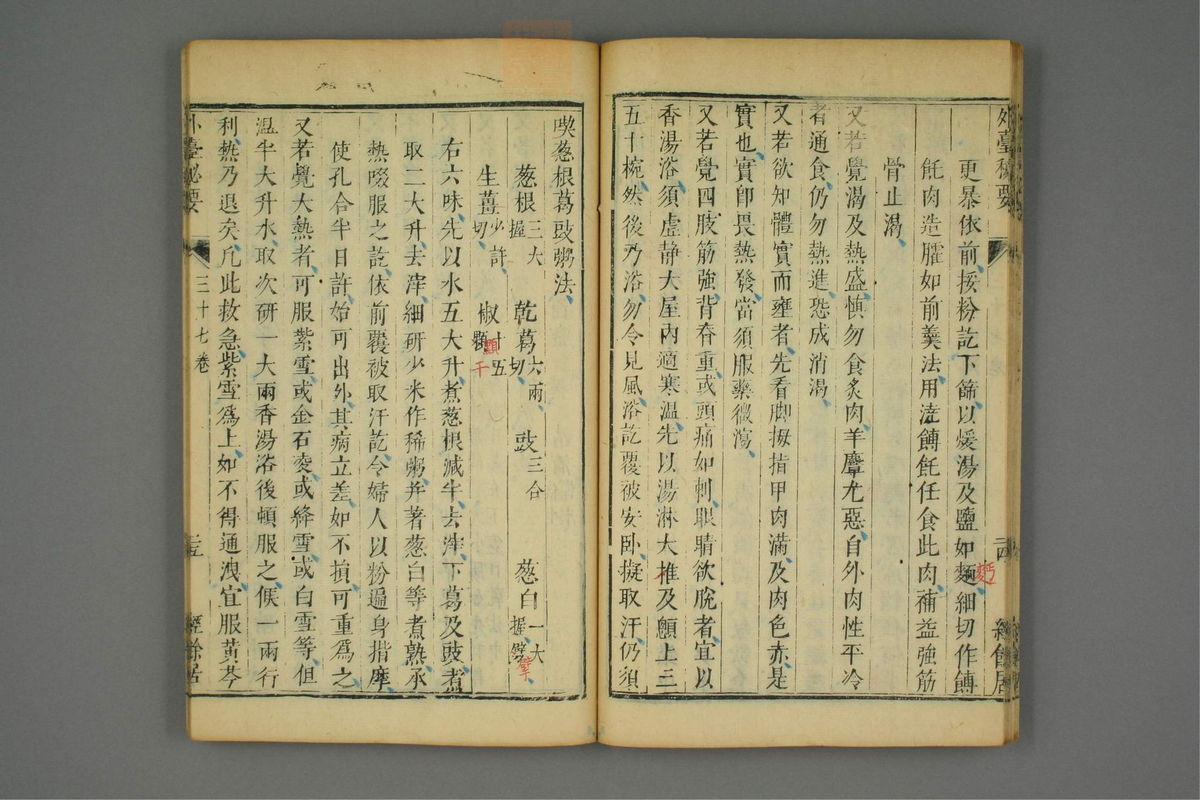 外臺秘要
二四
經餘居
更暴依前挼粉訖下篩以煖湯及鹽如麵細切作餺
飥肉造臛如前羹法用澆餺飥任食此肉補益強筋
骨止渴
又若覺渴及熱盛慎勿食炙肉羊麞尤惡自外肉性平冷
者通食仍勿熱進恐成消渴
又若欲知體實而壅者先看脚拇指甲肉滿及肉色赤是
實也實即畏熱發當須服藥微瀉
又若覺四肢筋強背脊重或頭痛如刺眼睛欲脫者宜以
香湯浴須虛静大屋內適寒温先以湯淋大椎及顖上三
五十椀然後乃浴勿令見風浴訖覆被安卧擬取汗仍須
喫葱根葛豉粥法
葱根三大握 乾葛六兩切 豉三合 葱白一大握劈
生薑少許切 椒十五顆
右六味先以水五大升煮葱根減半去滓下葛及豉煮
取二大升去滓細研少米作稀粥并著葱白等煮熟承
熱啜服之訖依前覆被取汗訖令婦人以粉遍身揩摩
使孔合半日許始可出外其病立差如不損可重爲之
又若覺大熱者可服紫雪或金石麥或絳雪或白雪等但
温半大升水取次研一大兩香湯浴後頓服之候一兩行
利熱乃退矣凢此救急紫雪爲上如不得通洩宜服黃芩
外臺秘要
三十七卷
二五
經餘居